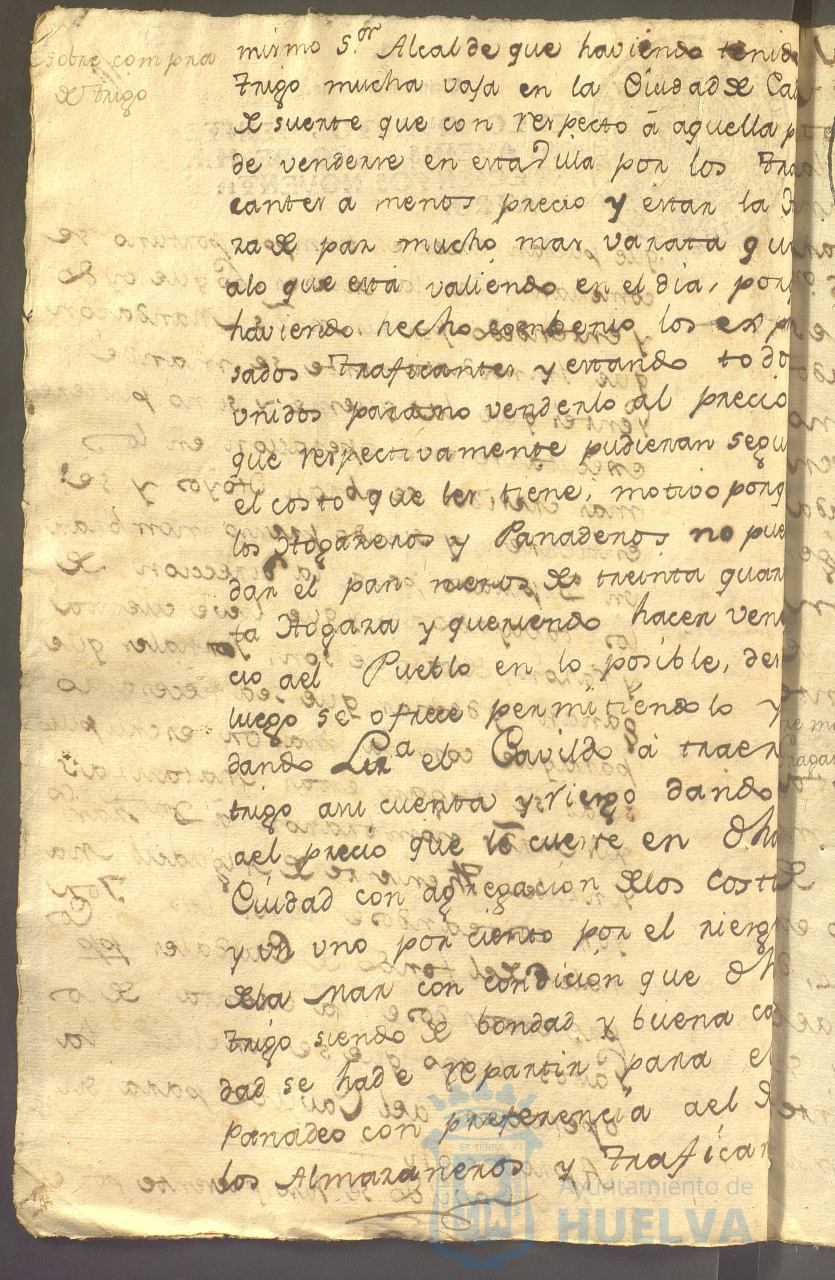 sobre compra
de trigo
mismo S.or Alcalde que haviendo tenido
trigo mucha vaja en la Ciudad de Ca
de suerte que con respecto â aquella p
de venderse en esta Villa por los tra
cantes a menos precio y estar la
ra de pan mucho mas varata qu
alo que está valiendo en el dia, por
haviendo hecho combenio los exp
sados traficantes y estando todo
vnidos para no venderlo al precio
que respectivamente pudieran segu
el costo que les tiene, motivo porq
los Hogazeros y Panaderos no pue
dar el pan menos de treinta quar
ta Hogaza y queriendo hacer ven
cio ael Pueblo en lo posible, des
luego se ofrece permitiendolo y
dando Liz.a el Cavildo â traer
trigo asu cuenta y riesgo dando
ael precio que le cueste en dh
Ciudad con agregacion delos costo
y un uno por ciento por el riesg
dela Mar con condicion que dh
trigo siendo de bondad y buena ca
dad se hade repartir para el
Panadeo con preferencia ael d
los Almazaneros y trafican
ET TERRA
Ayuntamiento de
HUELVA